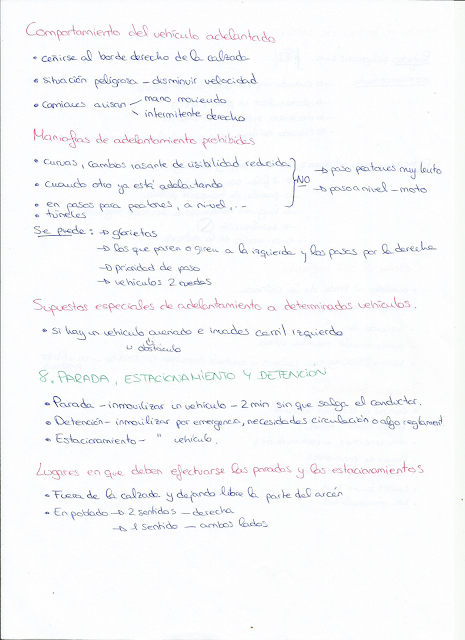 Comportamiento del vehículo adelantado
• ceñirse al borde derecho de la calzada
• situación peligrosa – disminuir velocidad
• camiones avisan – mano moviendo
intermitente derecho
Maniobras de adelantamiento prohibidas
• curvas, cambios rasante de visibilidad reducida
• cuando otro ya está adelantando
• en pasos para peatones, a nivel, ...
• túneles
NO
→ paso peatones muy lento
→ paso a nivel – moto
Se puede: → glorietas
→ los que paren o giren a la izquierda y los pasas por la derecha
→ prioridad de paso
→ vehículos 2 ruedas
Supuestos especiales de adelantamiento a determinados vehículos.
• Si hay un vehículo averiado e invades carril izquierdo
" obstáculo
8. PARADA, ESTACIONAMIENTO Y DETENCIÓN
• Parada – inmovilizar un vehículo – 2 min sin que salga el conductor.
• Detención – inmovilizar por emergencia, necesidades circulación o algo reglament
• Estacionamiento – " vehículo.
Lugares en que deben efectuarse las paradas y los estacionamientos
• Fuera de la calzada y dejando libre la parte del arcén
• En poblado → 2 sentidos – derecha
→ 1 sentido – ambos lados